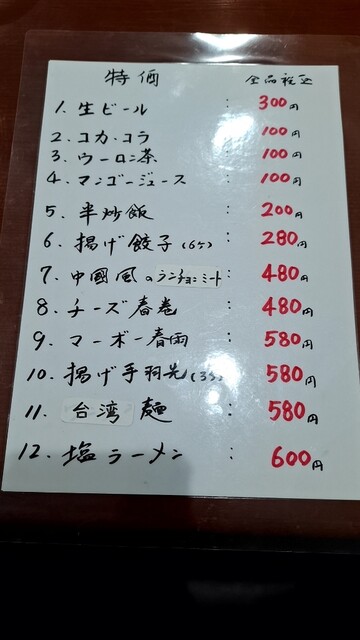 特価 全品税込
1. 生ビール : 300円
2. コカ・コラ : 100円
3. ウーロン茶 : 100円
4. マンゴージュース : 100円
5. 半炒飯 : 200円
6. 揚げ餃子(6ケ) : 280円
7. 中國風のランチョンミート : 480円
8. チーズ春巻 : 480円
9. マーボー春雨 : 580円
10. 揚げ手羽先(3ケ) : 580円
11. 台湾麺 : 580円
12. 塩ラーメン : 600円